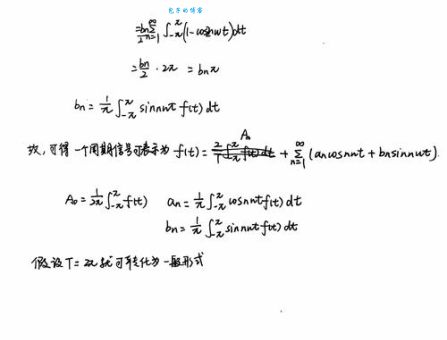 包子的博客
= bn/2 ∞Σn=1 ∫-π^π (1-cos2nwt)dt
= bn/2 · 2π = bnπ
bn = 1/π ∫-π^π sinnwt f(t) dt
故,可得一个周期信号可表示为 f(t) = A₀ + ∞Σn=1 (an cosnwt + bn sinnwt)
A₀ = 1/2π ∫-π^π f(t) an = 1/π ∫-π^π cosnwt f(t) dt
bn = 1/π ∫-π^π sinnwt f(t) dt
假设 T = 2π 就可转化为一般形式